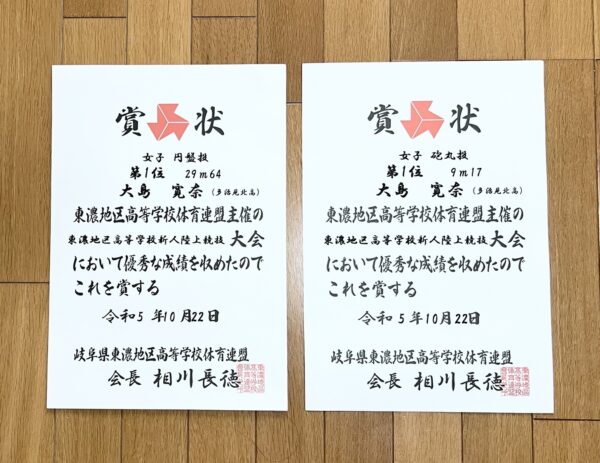 賞状
女子 円盤投
第1位 29m64
大島 寛奈（多治見北高）
東濃地区高等学校体育連盟主催の
東濃地区高等学校新人陸上競技 大会
において優秀な成績を収めたので
これを賞する
令和5年10月22日
岐阜県東濃地区高等学校体育連盟
会長 相川長徳
賞状
女子 砲丸投
第1位 9m17
大島 寛奈（多治見北高）
東濃地区高等学校体育連盟主催の
東濃地区高等学校新人陸上競技 大会
において優秀な成績を収めたので
これを賞する
令和5年10月22日
岐阜県東濃地区高等学校体育連盟
会長 相川長徳